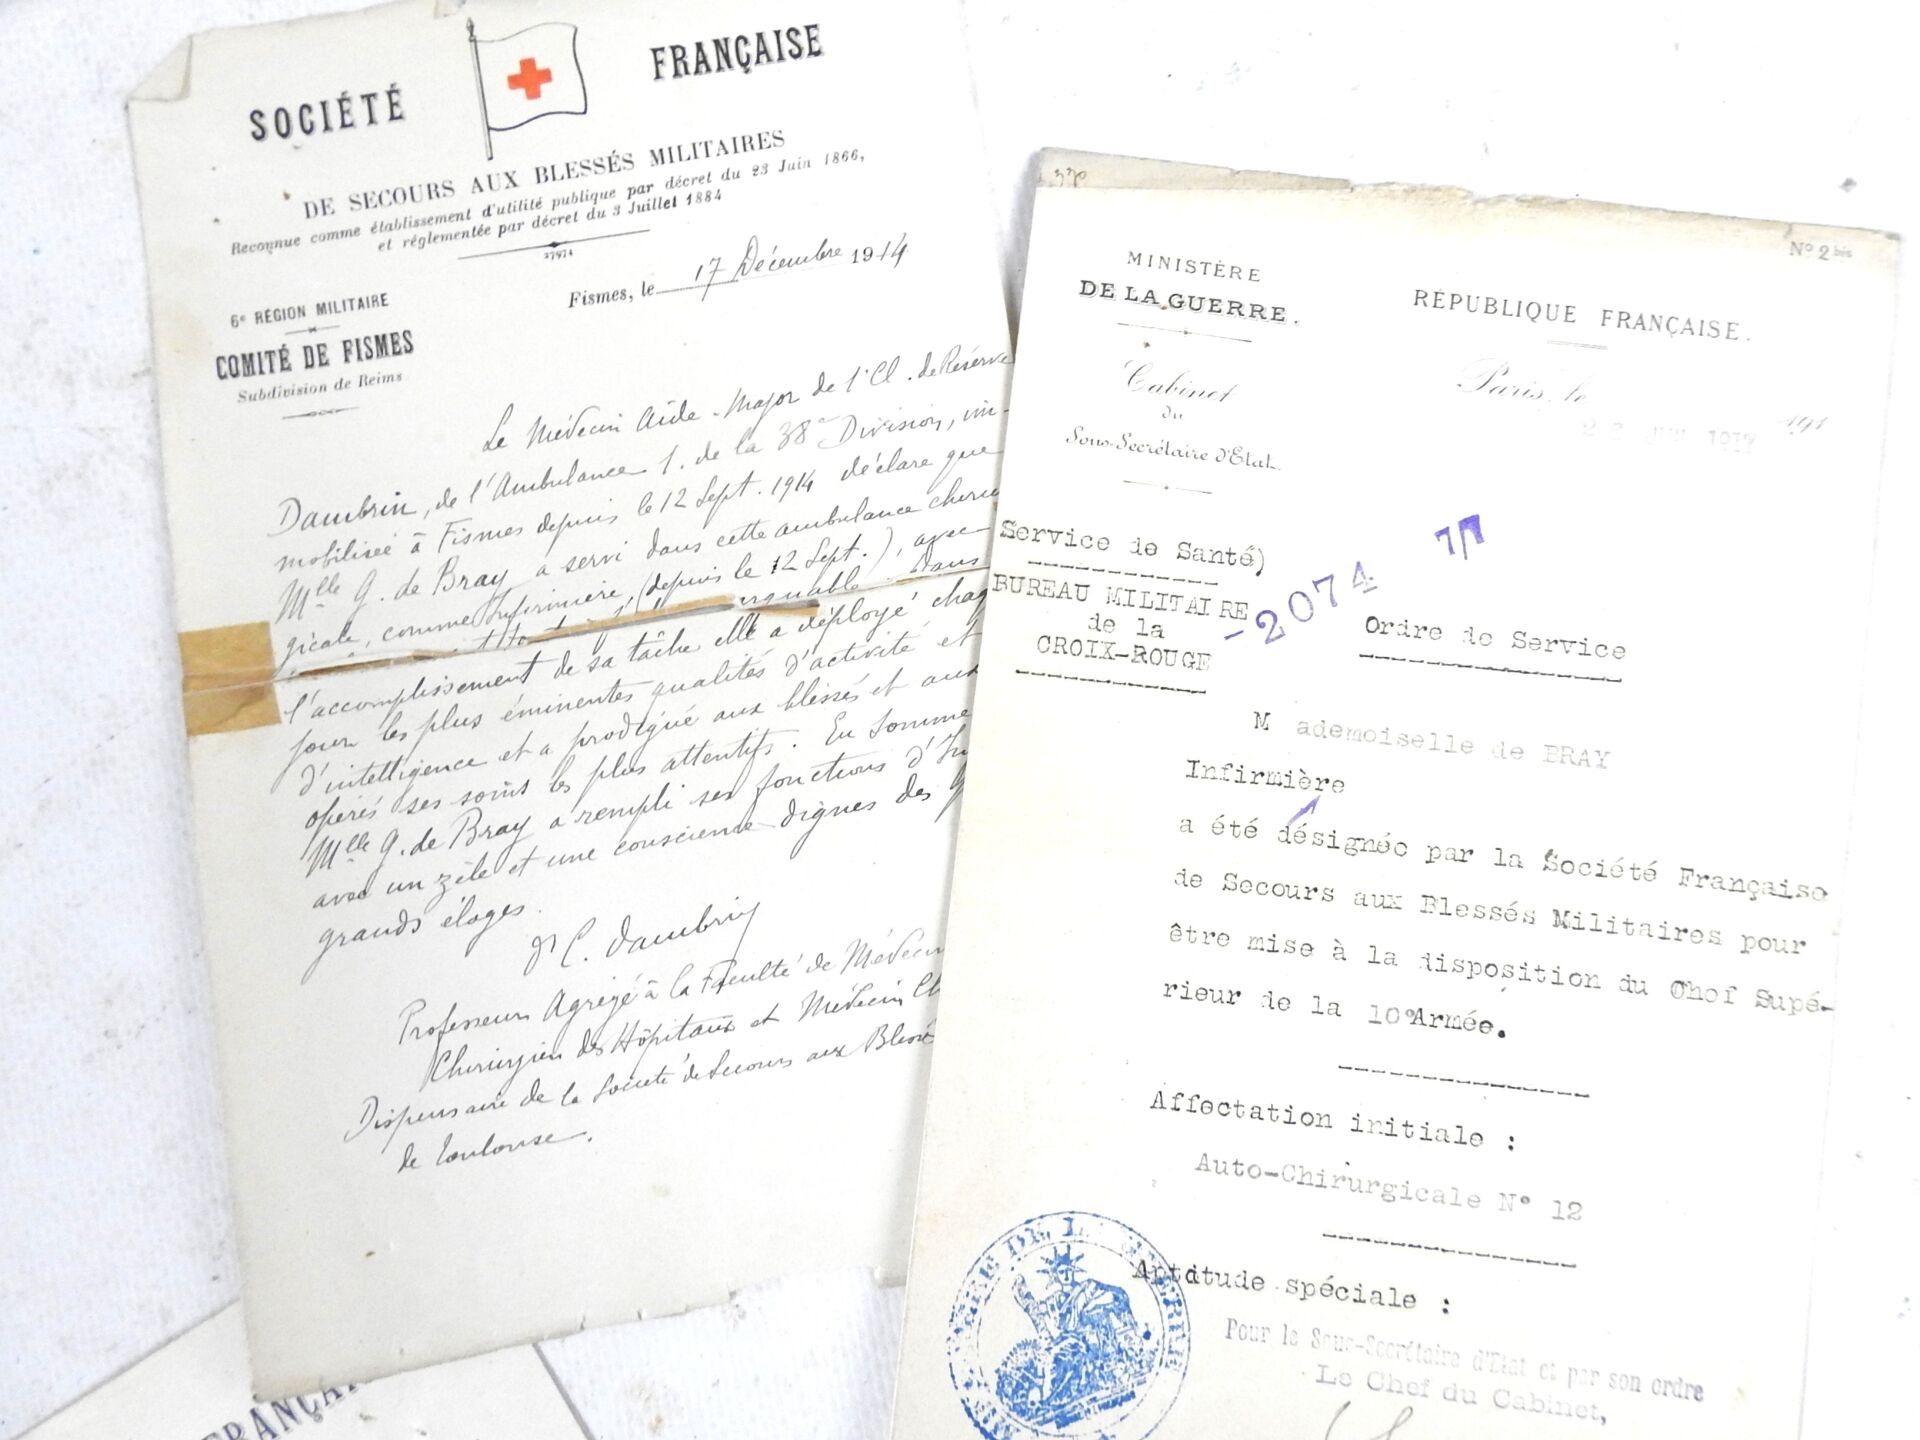 SOCIÉTÉ FRANÇAISE
DE SECOURS AUX BLESSÉS MILITAIRES
Reconnue comme établissement d'utilité publique par décret du 23 Juin 1866,
et réglementée par décret du 3 Juillet 1884
27974
Fismes, le 17 Décembre 1914
6e RÉGION MILITAIRE
COMITÉ DE FISMES
Subdivision de Reims
Le Médecin Aide-Major de 1e Cl. de Réserve
Dambrin, de l'Ambulance 1. de la 38e Division, im-
mobilisée à Fismes depuis le 12 Sept. 1914 déclare que
Mlle G. de Bray a servi dans cette ambulance chirur
gicale, comme Infirmière, (depuis le 12 Sept.), avec
dans
l'accomplissement de sa tâche elle a déployé chaq
jour les plus éminentes qualités d'activité et
d'intelligence et a prodigué aux blessés et aux
opérés ses soins les plus attentifs. En somme
Mlle G. de Bray a rempli ses fonctions d'In
avec un zèle et une conscience dignes des
grands éloges.
Dr C. Dambrin
Professeur Agrégé à la Faculté de Médecin
Chirurgien des Hôpitaux et Médecin Ch
Dispensaire de la Société de Secours aux Blessé
de Toulouse.
FRANÇA
No 2 bis
MINISTÈRE
DE LA GUERRE.
RÉPUBLIQUE FRANÇAISE.
Cabinet
du
Sous-Secrétaire d'État
Paris, le 191
1917
Service de Santé)
7/7
BUREAU MILITAIRE
de la
CROIX-ROUGE
-2074
Ordre de Service
M ademoiselle de BRAY
Infirmière
a été désignée par la Société Française
de Secours aux Blessés Militaires pour
être mise à la disposition du Chef Supé-
rieur de la 10° Armée.
Affectation initiale :
Auto-Chirurgicale N° 12
Aptitude spéciale :
Pour le Sous-Secrétaire d'Etat et par son ordre
Le Chef du Cabinet,